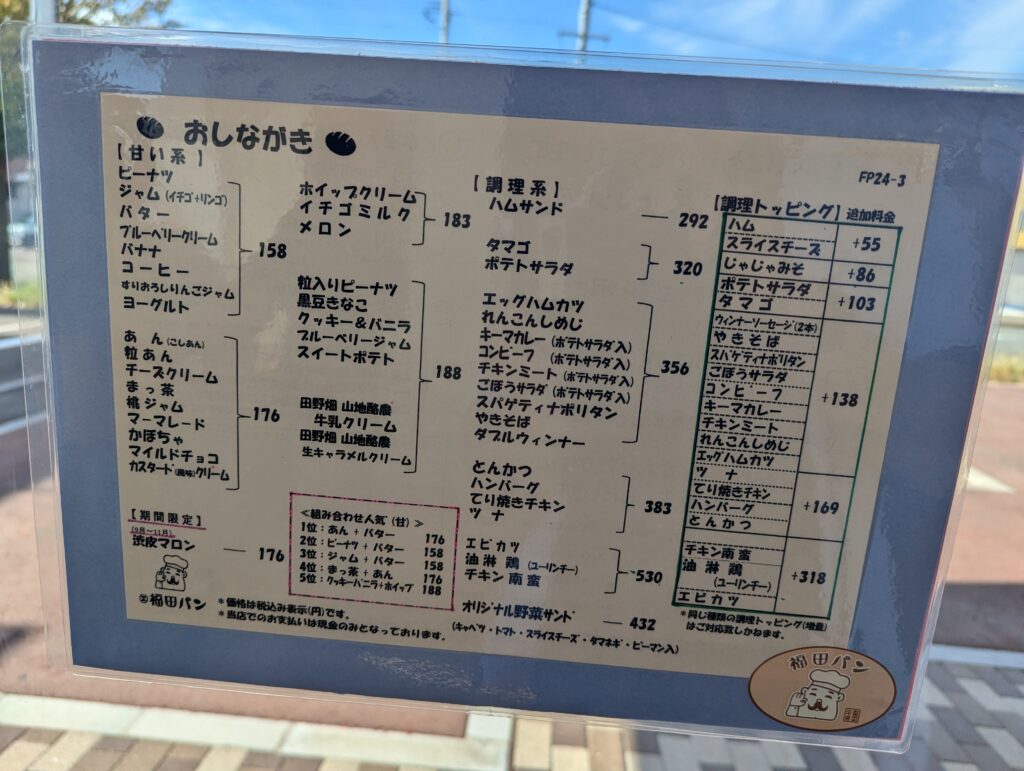 おしながき
【甘い系】
ピーナツ
ジャム(イチゴ+リンゴ)
バター
ブルーベリークリーム
バナナ
コーヒー
すりおろしりんごジャム
ヨーグルト
158
あん(こしあん)
粒あん
チーズクリーム
まっ茶
桃ジャム
マーマレード
かぼちゃ
マイルドチョコ
カスタード(風味)クリーム
176
【期間限定】
(9月~11月)
渋皮マロン ― 176
㋩福田パン
ホイップクリーム
イチゴミルク
メロン
183
粒入りピーナツ
黒豆きなこ
クッキー&バニラ
ブルーベリージャム
スイートポテト
田野畑 山地酪農
牛乳クリーム
田野畑 山地酪農
生キャラメルクリーム
188
≪組み合わせ人気(甘)≫
1位:あん+バター 176
2位:ピーナツ+バター 158
3位:ジャム+バター 158
4位:まっ茶+あん 176
5位:クッキーバニラ+ホイップ 188
*価格は税込み表示(円)です。
*当店でのお支払いは現金のみとなっております。
【調理系】
ハムサンド ― 292
タマゴ
ポテトサラダ
320
エッグハムカツ
れんこんしめじ
キーマカレー(ポテトサラダ入)
コンビーフ(ポテトサラダ入)
チキンミート(ポテトサラダ入)
ごぼうサラダ(ポテトサラダ入)
スパゲティナポリタン
やきそば
ダブルウィンナー
356
とんかつ
ハンバーグ
てり焼きチキン
ツナ
383
エビカツ
油淋鶏(ユーリンチー)
チキン南蛮
530
オリジナル野菜サンド ― 432
(キャベツ・トマト・スライスチーズ・タマネギ・ピーマン入)
FP24-3
【調理トッピング】追加料金
ハム
スライスチーズ
+55
じゃじゃみそ
+86
ポテトサラダ
タマゴ
+103
ウィンナーソーセージ(2本)
やきそば
スパゲティナポリタン
ごぼうサラダ
コンビーフ
キーマカレー
チキンミート
れんこんしめじ
エッグハムカツ
+138
ツナ
てり焼きチキン
ハンバーグ
とんかつ
+169
チキン南蛮
油淋鶏
(ユーリンチー)
エビカツ
+318
*同じ種類の調理トッピング(増量)
はご対応致しかねます。
福田パン